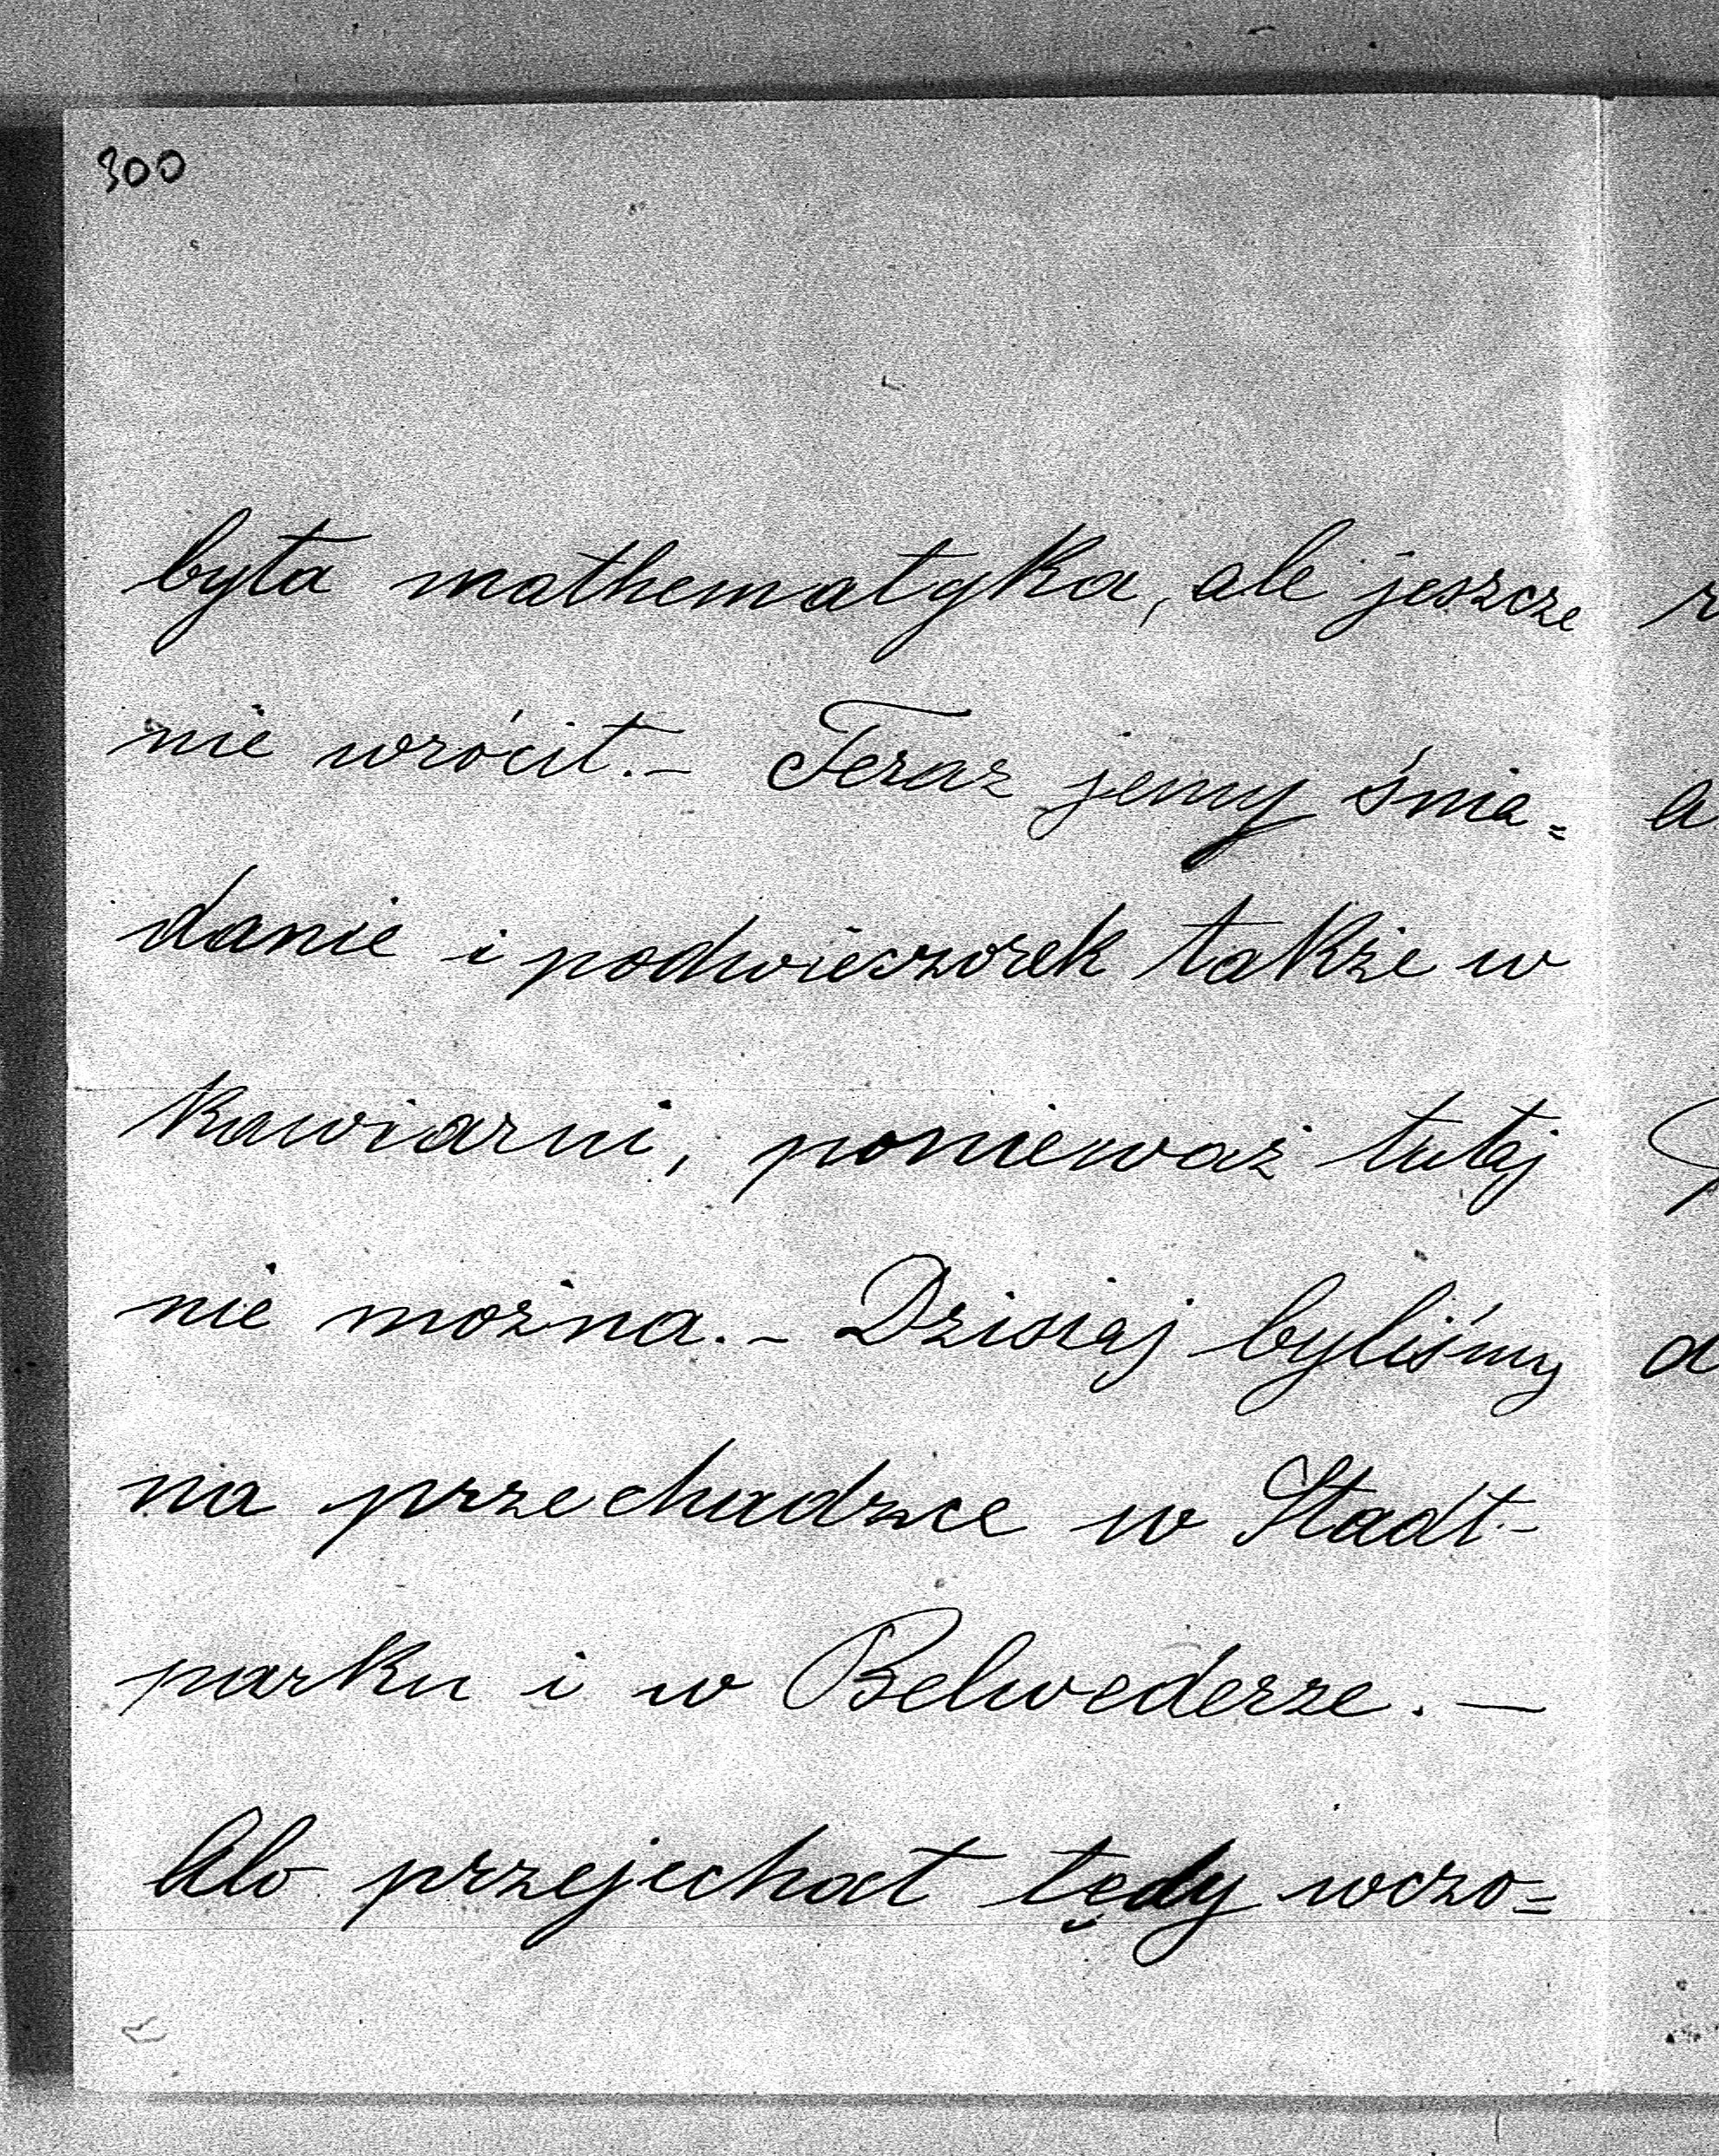 300
była mathematyka, ale jeszcze
nie wrócił.- Teraz jemy śnia=
danie i podwieczorek także w
kawiarni, ponieważ tutaj
nie można.- Dzisiaj byliśmy
na przechadzce w Stadt-
parku i w Belwederze.—
przejechał tędy wczo=